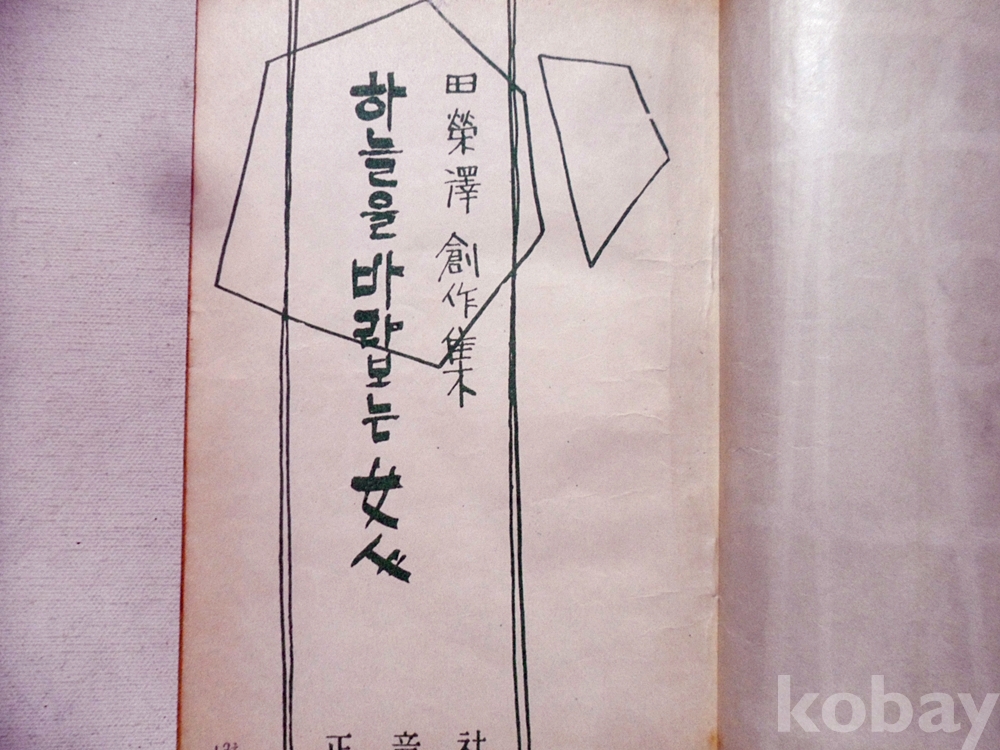 田榮澤 創作集
하늘을 바라보는 女人
正音社
kobay